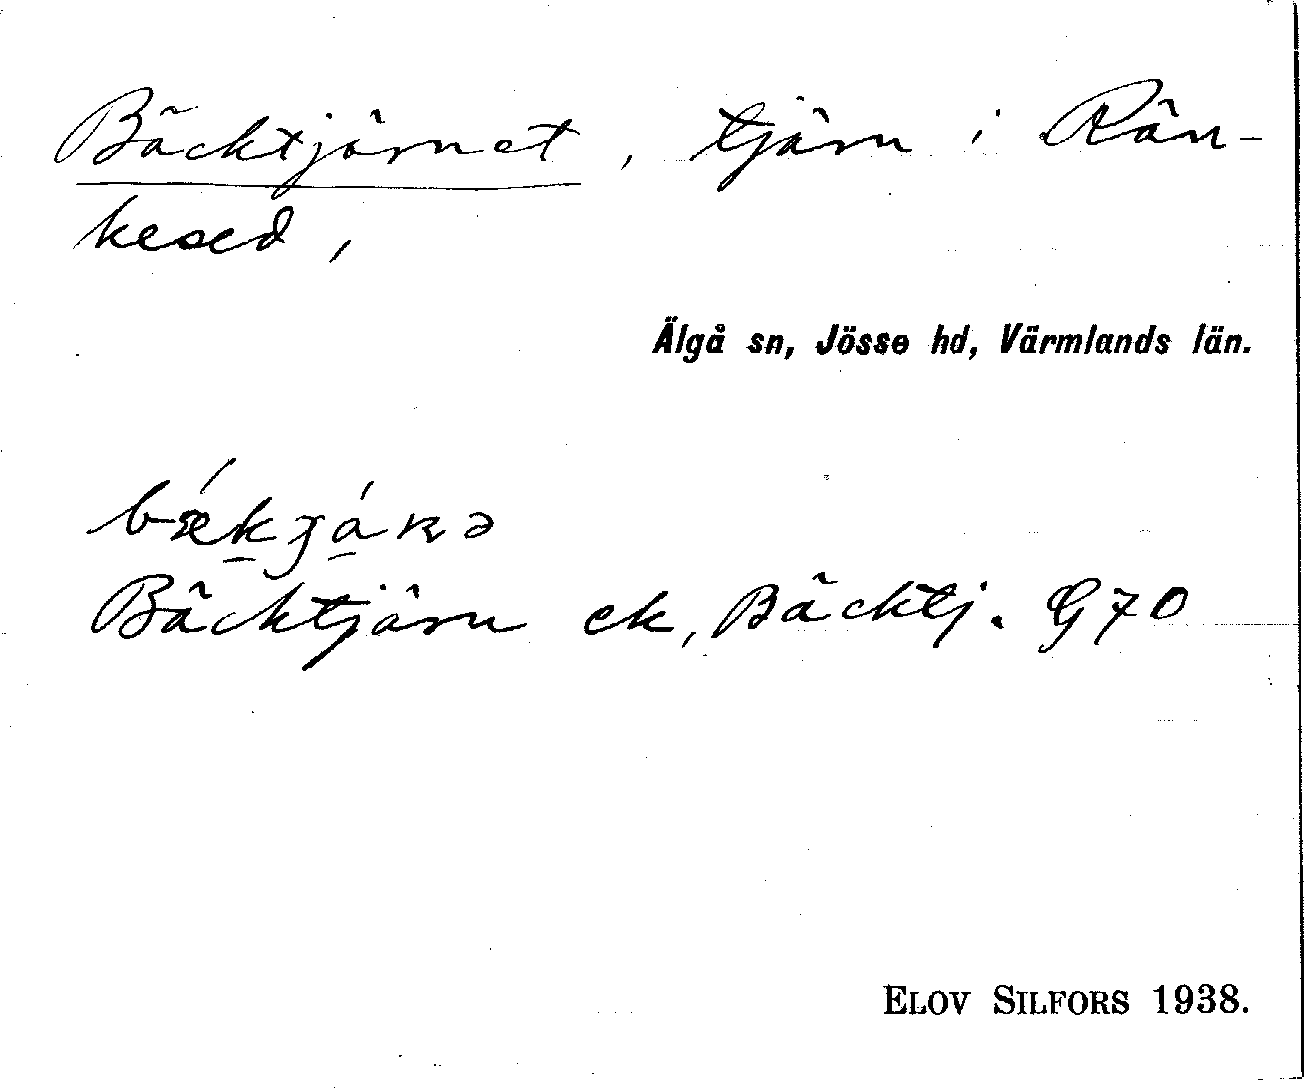 Bäcktjärnet, tjärn i Rän-
kesed,
Älgå sn, Jösse hd, Värmlands län.
Bäcktjärn ek, Bäcktj. G70
ELOV SILFORS 1938.